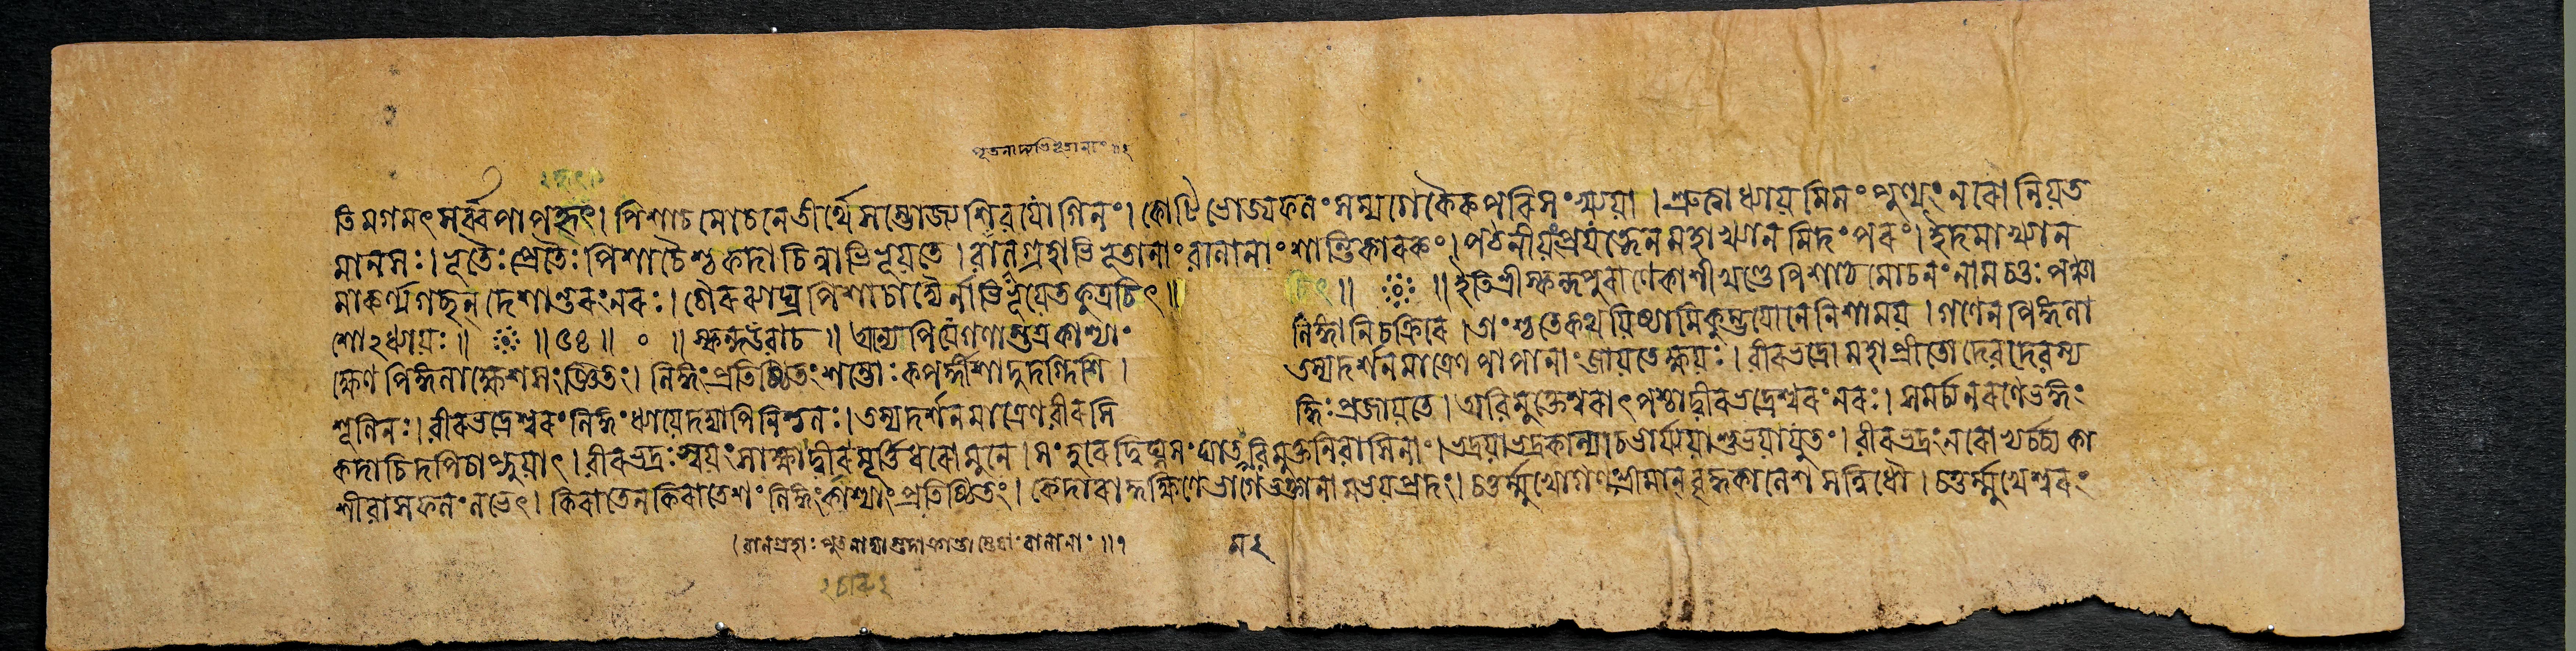 পূতনাদ্যভিভূতানাং ॥২
তিমগমৎ সর্ব্বপাপহৃৎ। পিশাচমোচনে তীর্থে সম্ভোজ্য শিবযোগিনং। কোটিভোজ্যফলং সম্যগেকৈকপরিসংখ্যয়া। শ্রুত্বাধ্যায়মিমং পুণ্যং নরো নিয়ত
মানসঃ। ভূতৈঃ প্রেতৈঃ পিশাচৈশ্চ কদাচিন্নাভিভূয়তে। বালগ্রহাভিভূতানাং বালানাং শান্তিকারকং। পঠনীয়ং প্রযত্নেন মহাখ্যানমিদং পরং। ইদমাখ্যান
মাকর্ণ্য গচ্ছন্ দেশান্তরং নরঃ। চৌরব্যাঘ্রপিশাচাদ্যৈর্নাভিভূয়েত কুত্রচিৎ॥ ॥ ॥ ইতি শ্রীস্কন্দপুরাণে কাশীখণ্ডে পিশাচমোচনং নাম চতুঃপঞ্চা
শোঽধ্যায়ঃ॥ ॥৫৪॥ ॰ ॥ স্কন্দ উবাচ॥ অন্যেপি যে গণাস্তত্র কাশ্যাং লিঙ্গানি চক্রিরে। তাংশ্চ তে কথয়িষ্যামি কুম্ভযোনে নিশাময়। গণেন পিঙ্গলা
ক্ষেণ পিঙ্গলাক্ষেশসংজ্ঞিতং। লিঙ্গং প্রতিষ্ঠিতং শম্ভোঃ কপর্দ্দীশাদুদগ্দিশি। তস্য দর্শনমাত্রেণ পাপানাং জায়তে ক্ষয়ঃ। বীরভদ্রো মহাপ্রীতো দেবদেবস্য
শূলিনঃ। বীরভদ্রেশ্বরং লিঙ্গং ধ্যায়েদদ্যাপি নিশ্চলঃ। তস্য দর্শনমাত্রেণ বীরসিদ্ধিঃ প্রজায়তে। অবিমুক্তেশ্বরাৎ পশ্চাদ্বীরভদ্রেশ্বরং নরঃ। সমর্চ্য ন রণে ভঙ্গং
কদাচিদপি চাপ্নুয়াৎ। বীরভদ্রঃ স্বয়ং সাক্ষাদ্বীরমূর্ত্তিধরো মুনে। বিঘ্নসংঘাতমবিমুক্তনিবাসিনাং। ভদ্রয়া ভদ্রকাল্যা চ ভার্য্যয়া শুভয়া যুতং। বীরভদ্রং নরোভ্যর্চ্চ্য কা
শীবাসফলং লভেৎ। কিরাতেন কিরাতেশং লিঙ্গং কাশ্যাং প্রতিষ্ঠিতং। কেদারাদ্দক্ষিণে ভাগে ভক্তানামভয়প্রদং। চতুর্ম্মুখো গণঃ শ্রীমান্ বৃদ্ধকালেশসন্নিধৌ। চতুর্ম্মুখেশ্বরং
বালগ্রহাঃ পূতনাদ্যা বালানাং ॥১